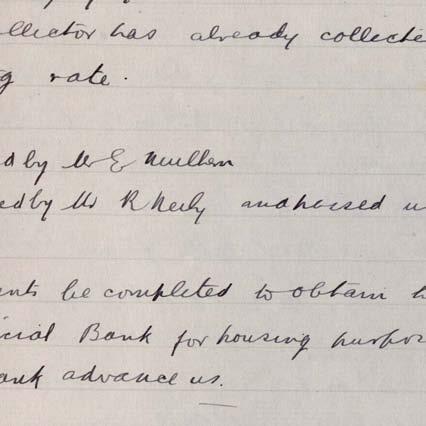 ollector has already collecte
g rate.
d by Mr E Mullan
ed by Mr R Neely and passed u
ents be completed to obtain
cial Bank for housing purpos
ank advance us.